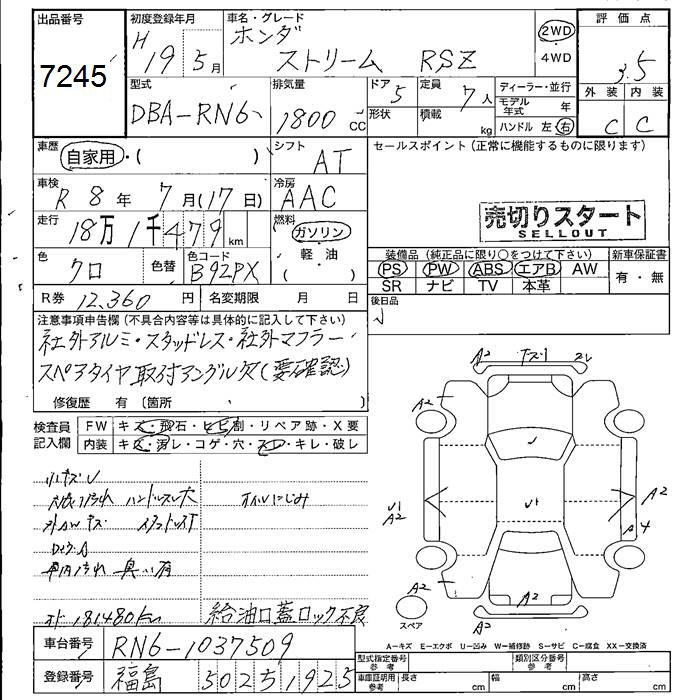 出品番号
7245
初度登録年月
H 19 5月
車名・グレード
ホンダ
ストリーム RSZ
2WD
4WD
評価点
3.5
外装 内装
C C
型式
DBA-RN6
排気量
1800 cc
ドア 5
定員 7人
形状
積載 kg
ディーラー・並行
モデル年式 年
ハンドル 左 右
車歴
自家用・( )
シフト
AT
車検
R 8年 7月(17日)
冷房
AAC
走行
18万1千479 km
燃料
ガソリン
軽・油
色
クロ
色替
色コード
B92PX
R券 12,360 円
名変期限 月 日
セールスポイント(正常に機能するものに限ります)
売切りスタート
SELLOUT
装備品(純正品に限り○をつけて下さい)
新車保証書
PS PW ABS エアB AW
SR ナビ TV 本革
有・無
後日品
注意事項申告欄(不具合内容等は具体的に記入して下さい)
社外アルミ・スタッドレス・社外マフラー
スペアタイヤ取付アングル欠(要確認)
修復歴 有 (箇所
検査員記入欄
FW キズ・飛石・ヒビ割・リペア跡・X要
内装 キズ・汚レ・コゲ・穴・スレ・キレ・破レ
小キズU
ハンドルスレ大
オイルにじみ
外AWキズ
車内汚れ 臭い有
オド 181480km
給油口蓋ロック不良
A2
A2
A2
U1
A2
A2
A4
A2
A2
A2
A2
スペア
車台番号
RN6-1037509
登録番号
福島 502 ち 1925
A－キズ E－エクボ U－凹み W－補修跡 S－サビ C－腐食 XX－交換済
型式指定番号 参考
類別区分番号 参考
車庫証明用 参考
長さ cm
幅 cm
高さ cm